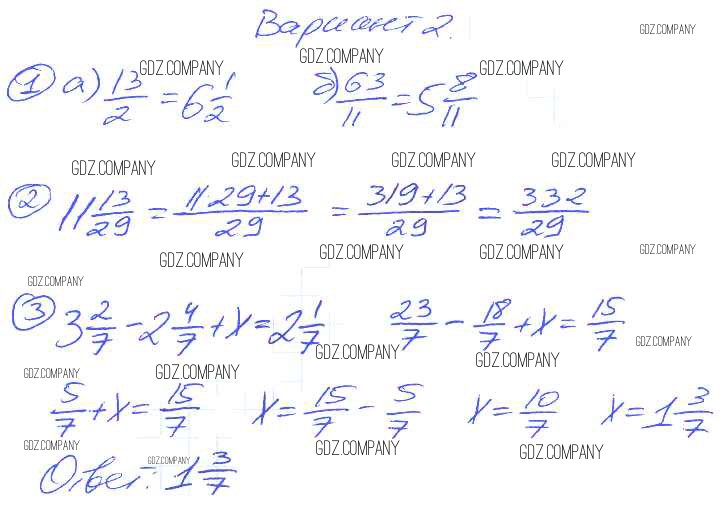 Вариант 2.
GDZ.COMPANY
GDZ.COMPANY GDZ.COMPANY GDZ.COMPANY
① а) 13/2 = 6 1/2 б) 63/11 = 5 8/11
GDZ.COMPANY GDZ.COMPANY GDZ.COMPANY GDZ.COMPANY
② 11 13/29 = 11 29+13/29 = 319+13/29 = 332/29
GDZ.COMPANY GDZ.COMPANY GDZ.COMPANY GDZ.COMPANY
GDZ.COMPANY
③ 3 2/7 - 2 4/7 + x = 2 1/7 23/7 - 18/7 + x = 15/7
GDZ.COMPANY GDZ.COMPANY GDZ.COMPANY
GDZ.COMPANY GDZ.COMPANY
5/7 + x = 15/7 x = 15/7 - 5/7 x = 10/7 x = 1 3/7
GDZ.COMPANY GDZ.COMPANY GDZ.COMPANY
Ответ: 1 3/7
GDZ.COMPANY